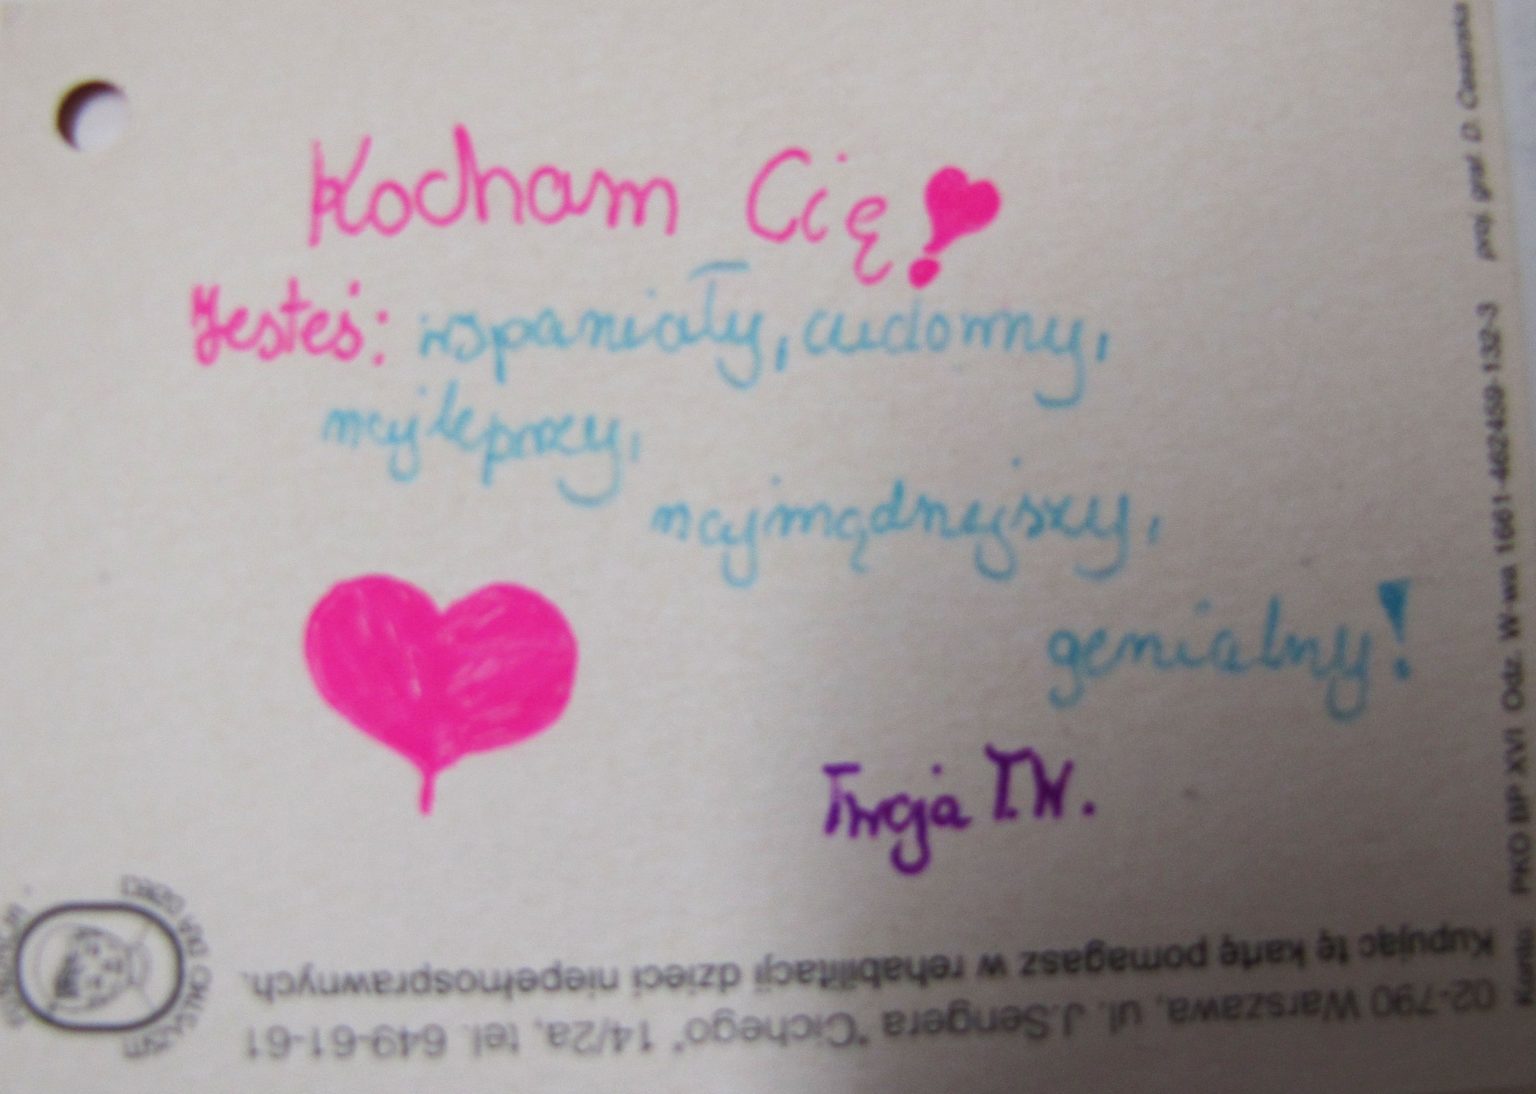 Kocham Cię!
Jesteś: wspaniały, cudowny,
najleprzy,
najmądrzejszy,
genialny!
Twoja T.W.
Kupując tę kartę pomagasz w rehabilitacji dzieci niepełnosprawnych.
02-790 Warszawa, ul. J.Sengera "Cichego" 14/2a, tel. 649-61-61
Konto PKO BP XVI Odz. W-wa 1661-462459-132-3 proj. graf. D.